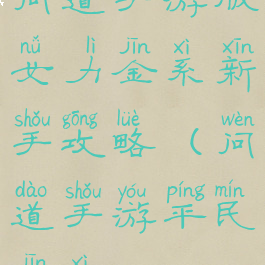 问道手游版
nǚ lì jīn xì xīn
女力金系新
shǒu gōng lüè wèn
手攻略（问
dào shǒu yóu píng mín
道手游平民
jīn xì